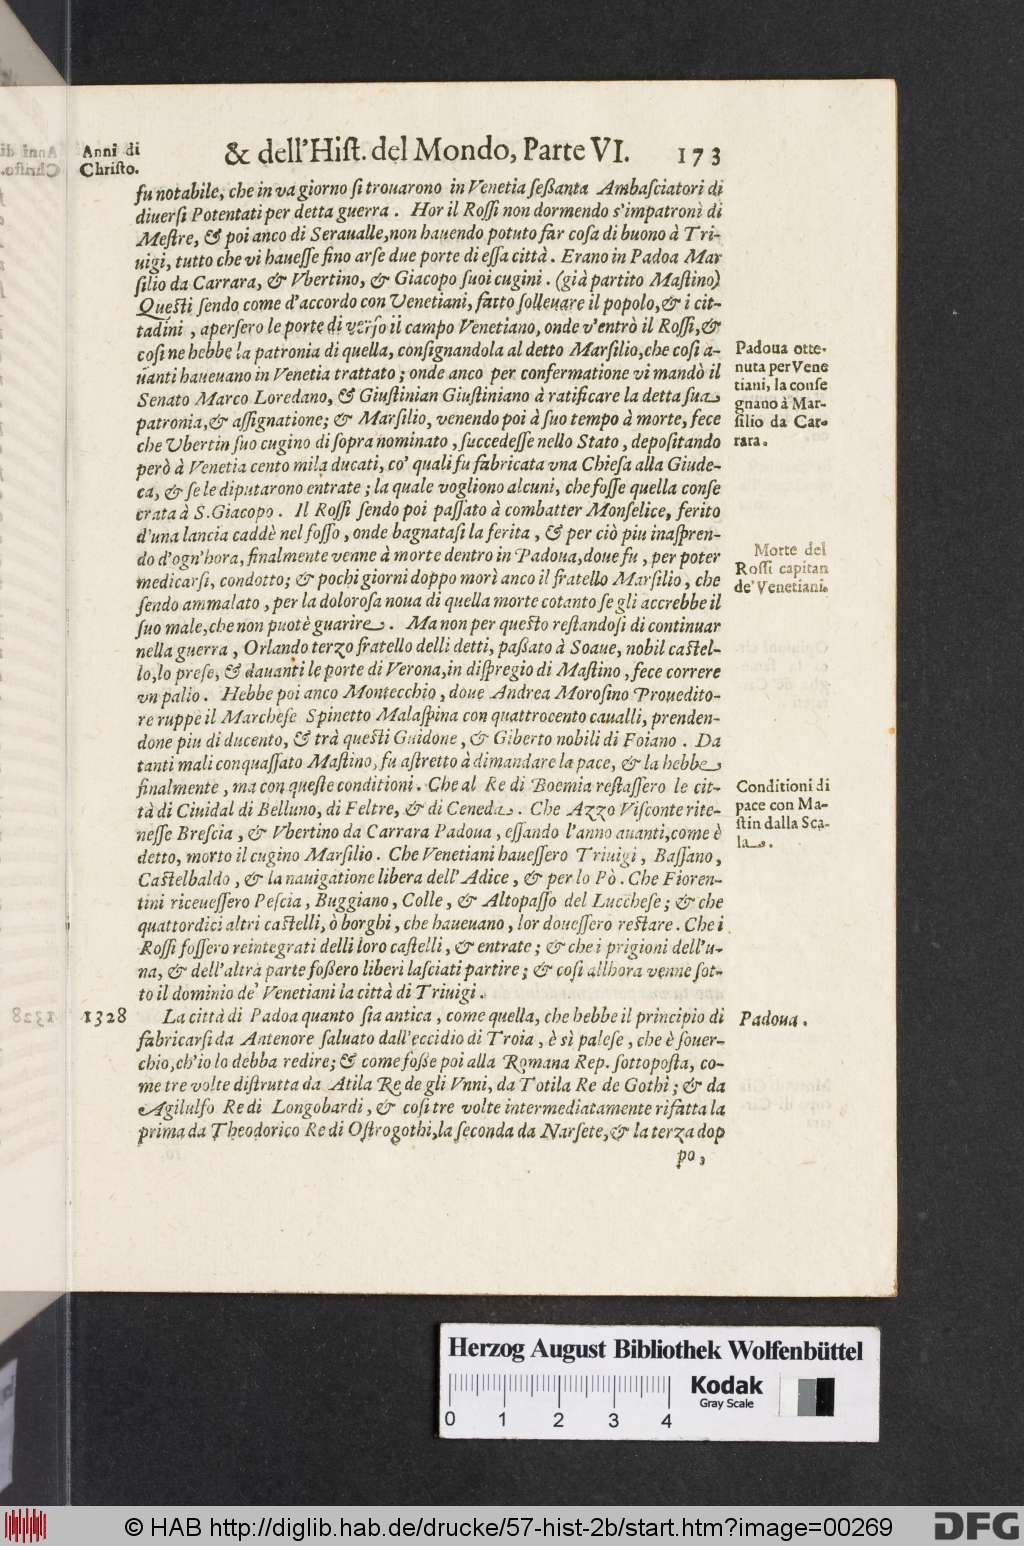 Anni di
Chriſto.
& dell'Hiſt. del Mondo, Parte VI. 173
fu notabile, che in va giorno ſi trouarono in Venetia ſeßanta Ambaſciatori di
diuerſi Potentati per detta guerra. Hor il Roſſi non dormendo s'impatronì di
Meſtre, & poi anco di Seraualle, non hauendo potuto far coſa di buono à Tri-
uigi, tutto che vi haueſſe fino arſe due porte di eſſa città. Erano in Padoa Mar
ſilio da Carrara, & Vbertino, & Giacopo ſuoi cugini. (già partito Maſtino)
Queſti ſendo come d'accordo con Venetiani, fatto ſolleuare il popolo, & i cit-
tadini, aperſero le porte di verſo il campo Venetiano, onde v'entrò il Roſſi, &
coſi ne hebbe la patronia di quella, conſignandola al detto Marſilio, che coſi a-
uanti haueuano in Venetia trattato; onde anco per confermatione vi mandò il
Senato Marco Loredano, & Giuſtinian Giuſtiniano à ratificare la detta ſua
patronia, & aſſignatione; & Marſilio, venendo poi à ſuo tempo à morte, fece
che Vbertin ſuo cugino di ſopra nominato, ſuccedeſſe nello Stato, depoſitando
però à Venetia cento mila ducati, co' quali fu fabricata vna Chieſa alla Giude-
ca, & ſe le diputarono entrate; la quale vogliono alcuni, che foſſe quella conſe
crata à S. Giacopo. Il Roſſi ſendo poi paſſato à combatter Monſelice, ferito
d'una lancia caddè nel foſſo, onde bagnataſi la ferita, & per ciò piu inaſpren-
do d'ogn'hora, finalmente venne à morte dentro in Padoua, doue fu, per poter
medicarſi, condotto; & pochi giorni doppo morì anco il fratello Marſilio, che
ſendo ammalato, per la doloroſa noua di quella morte cotanto ſe gli accrebbe il
ſuo male, che non puotè guarire. Ma non per queſto reſtandoſi di continuar
nella guerra, Orlando terzo fratello delli detti, paßato à Soaue, nobil caſtel-
lo, lo preſe, & dauanti le porte di Verona, in diſpregio di Maſtino, fece correre
vn palio. Hebbe poi anco Montecchio, doue Andrea Moroſino Prouedito-
re ruppe il Marcheſe Spinetto Malaſpina con quattrocento caualli, prenden-
done piu di ducento, & trà queſti Guidone, & Giberto nobili di Foiano. Da
tanti mali conquaſſato Maſtino, fu aſtretto à dimandare la pace, & la hebbe
finalmente, ma con queſte conditioni. Che al Re di Boemia reſtaſſero le cit-
tà di Ciuidal di Belluno, di Feltre, & di Ceneda. Che Azzo Viſconte rite-
neſſe Breſcia, & Vbertino da Carrara Padoua, eſſando l'anno auanti, come è
detto, morto il cugino Marſilio. Che Venetiani haueſſero Triuigi, Baſſano,
Caſtelbaldo, & la nauigatione libera dell'Adice, & per lo Pò. Che Fioren-
tini riceueſſero Peſcia, Buggiano, Colle, & Altopaſſo del Luccheſe; & che
quattordici altri caſtelli, ò borghi, che haueuano, lor doueſſero reſtare. Che i
Roſſi foſſero reintegrati delli loro caſtelli, & entrate; & che i prigioni dell'u-
na, & dell'altra parte foßero liberi laſciati partire; & coſi allhora venne ſot-
to il dominio de' Venetiani la città di Triuigi.
1328 La città di Padoa quanto ſia antica, come quella, che hebbe il principio di
fabricarſi da Antenore ſaluato dall'eccidio di Troia, è sì paleſe, che è ſouer-
chio, ch'io lo debba redire; & come foße poi alla Romana Rep. ſottopoſta, co-
me tre volte diſtrutta da Atila Re de gli Vnni, da Totila Re de Gothi; & da
Agilulfo Re di Longobardi, & coſi tre volte intermediatamente rifatta la
prima da Theodorico Re di Oſtrogothi, la ſeconda da Narſete, & la terza dop
po,
Padoua otte-
nuta per Vene
tiani, la conſe
gnano à Mar-
ſilio da Car-
rara.
Morte del
Roſſi capitan
de' Venetiani.
Conditioni di
pace con Ma-
ſtin dalla Sca-
la.
Padoua.
Herzog August Bibliothek Wolfenbüttel
0 1 2 3 4
Kodak
Gray Scale
© HAB http://diglib.hab.de/drucke/57-hist-2b/start.htm?image=00269
DFG